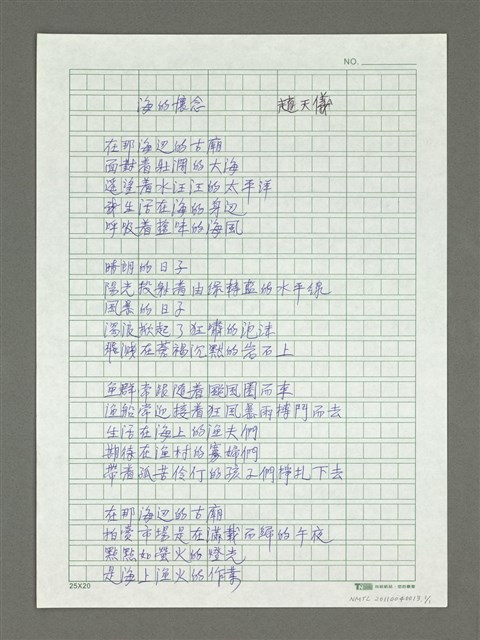 NO.
海的懷念 趙天儀
在那海边的古廟
面對着壯濶的大海
遥望着水汪汪的太平洋
我生活在海的身边
呼吸着盐味的海風
晴朗的日子
陽光投射着由綠轉藍的水平線
風暴的日子
濤浪掀起了狂嘯的泡沫
飛濺在茶褐沉默的岩石上
魚群常跟隨着颱風圈而來
漁船常迎接着狂風暴雨搏鬥而去
生活在海上的漁夫們
期待在漁村的寡婦們
帶着孤苦伶仃的孩子們掙扎下去
在那海边的古廟
拍賣市場是在滿載而歸的午夜
點點如螢火的燈光
是海上漁火的作業
25X20
NMTL 20110040013 1/1